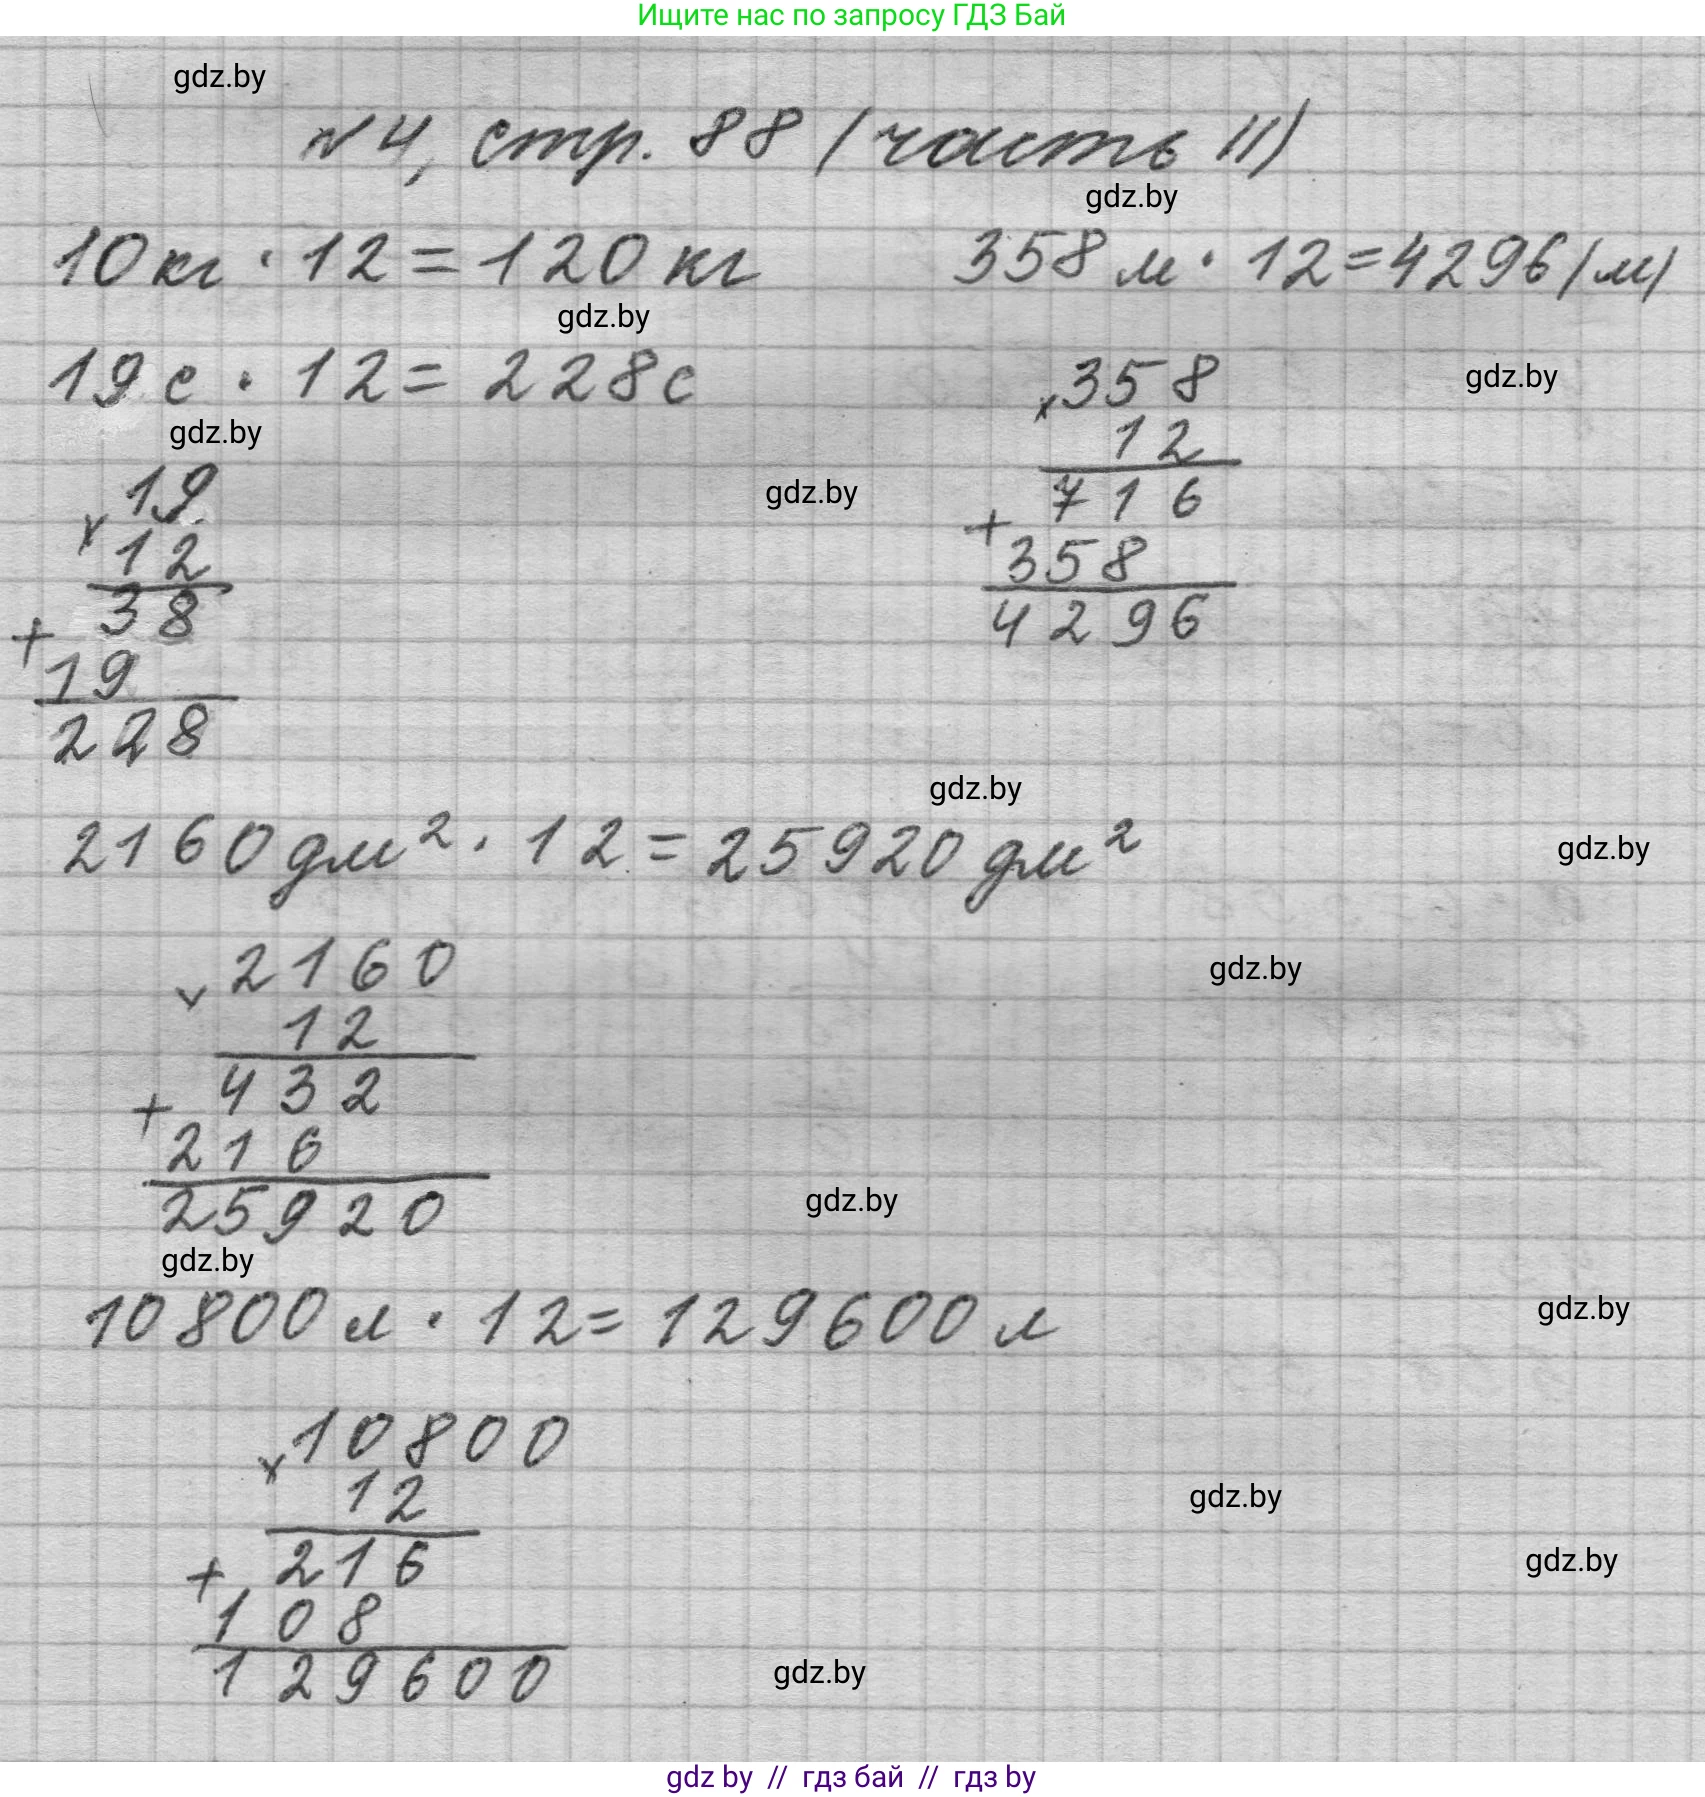 Ищите нас по запросу ГДЗ Бай
gdz.by
№4, стр. 88 (часть II)
gdz.by
10 кг · 12 = 120 кг
358 м · 12 = 4296 (м)
gdz.by
19 с · 12 = 228 с
gdz.by
× 19
12
38
+
19
228
gdz.by
× 358
12
716
+
358
4296
gdz.by
gdz.by
2160 дм² · 12 = 25920 дм²
gdz.by
× 2160
12
432
+
216
25920
gdz.by
gdz.by
gdz.by
10800 л · 12 = 129600 л
gdz.by
× 10800
12
216
+
108
129600
gdz.by
gdz.by
gdz.by
gdz by // гдз бай // гдз by